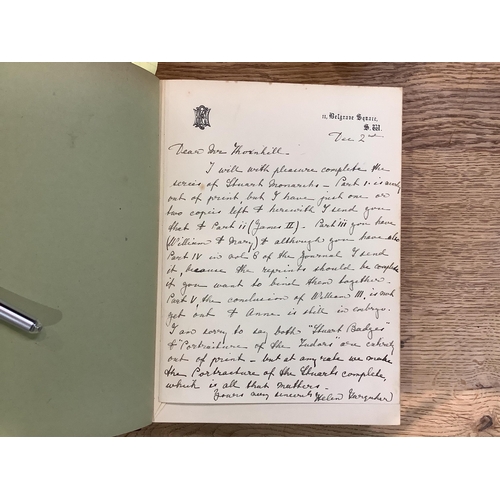 11, Belgrave Square,
S.W.
Dec 2nd
Dear Mr Thornhill.
I will with pleasure complete the
series of Stuart Monarchs - Part I. is nearly
out of print but I have just one or
two copies left & herewith I send you
that & Part ii (James II). Part iii you have
(William & Mary) & although you have also
Part IV in vol 8 of the Journal I send
it, because the reprints should be complete
if you want to bind them together.
Part V, the conclusion of William III, is not
yet out & Anne is still in embryo.
I am sorry to say both "Stuart Badges"
& "Portraiture of the Tudors" are entirely
out of print - but at any rate we make
the Portraiture of the Stuarts complete,
which is all that matters -
Yours very sincerely Helen Farquhar